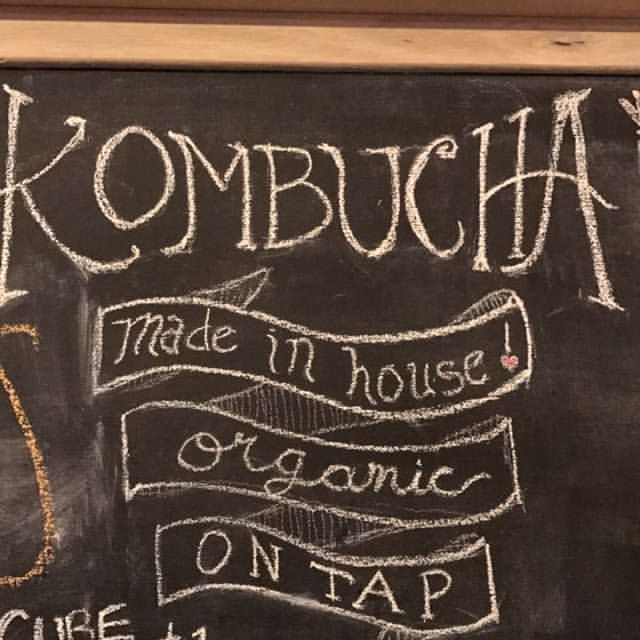 KOMBUCHA
made in house!
organic
ON TAP
CUBE